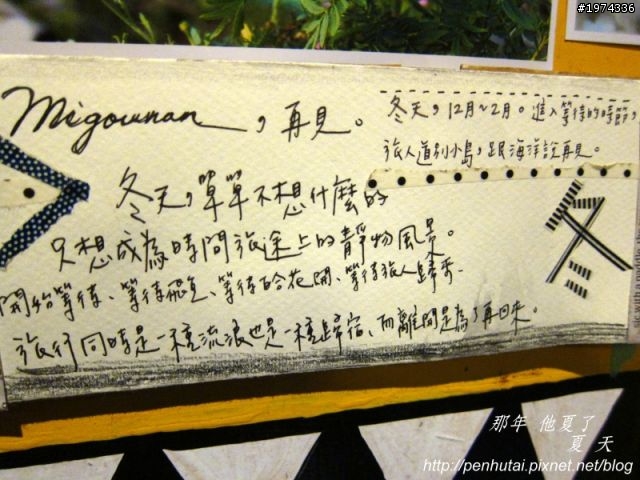 #1974336
Migounan，再見。
冬天，12月~2月。進入等待的時節，
旅人道別小島，跟海洋說再見。
冬天，單單不想什麼的
只想成為時間旅途上的靜物風景。
開始等待、等待飛魚、等待百合花開、等待旅人歸來。
旅行同時是一種流浪也是一種歸宿、而離開是為了再回來。
冬
那年 他夏了
夏 天
http://penhutai.pixnet.net/blog